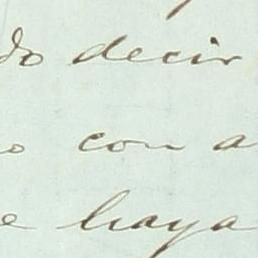 do decir
o con a
e haya